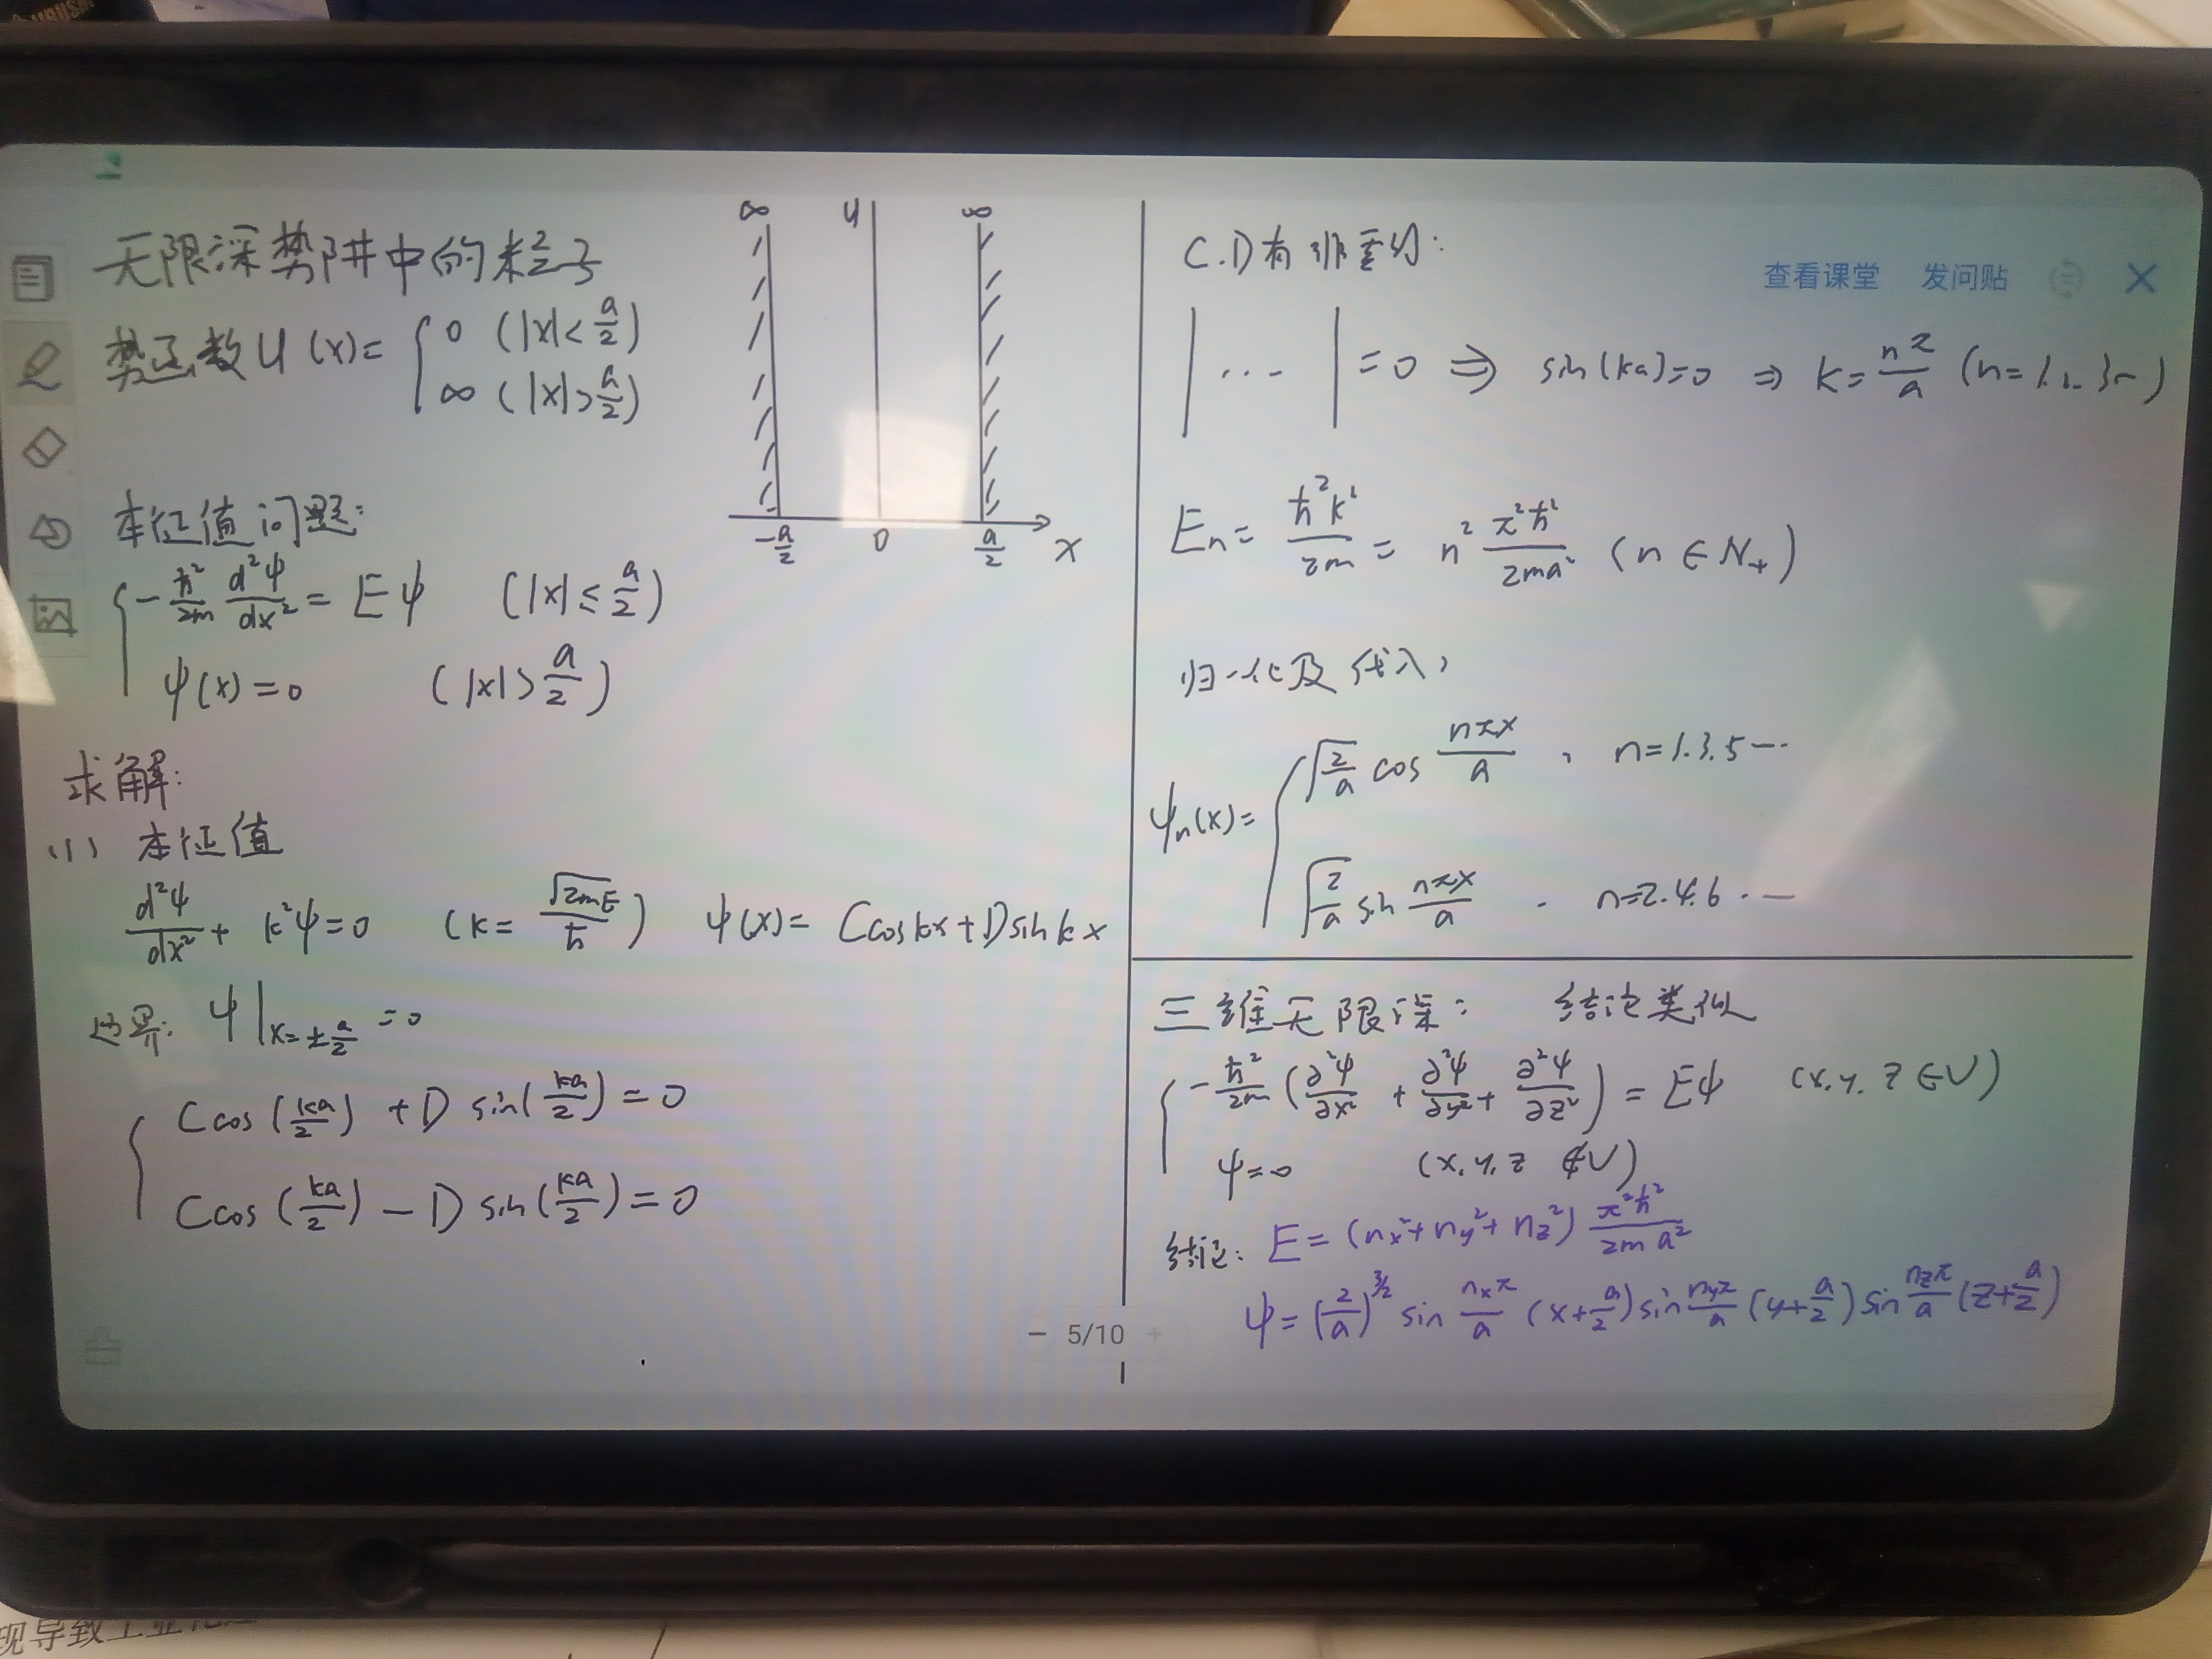 无限深势阱中的粒子
势函数U(x)= { 0 (|x|<a/2)
∞ (|x|>a/2)
∞ U ∞
-a/2 0 a/2 x
本征值问题:
{ -ħ²/2m d²ψ/dx² = Eψ (|x|≤a/2)
ψ(x)=0 (|x|>a/2)
求解:
(1) 本征值
d²ψ/dx² + k²ψ=0 (k=√2mE/ħ) ψ(x)= Ccoskx+Dsinkx
边界: ψ|x=±a/2 =0
{ Ccos(ka/2) + D sin(ka/2)=0
Ccos(ka/2) - D sin(ka/2)=0
C.D有非零幻:
查看课堂 发问贴
| ... | =0 ⇒ sin(ka)=0 ⇒ k=nπ/a (n=1.2.3…)
En= ħ²k²/2m = n² π²ħ²/2ma² (n∈N+)
归一化及代入,
ψn(x)= { √2/a cos nπx/a , n=1.3.5…
√2/a sin nπx/a . n=2.4.6.…
三维无限深: 结论类似
{ -ħ²/2m (∂²ψ/∂x² + ∂²ψ/∂y² + ∂²ψ/∂z²) = Eψ (x.y.z∈V)
ψ=0 (x.y.z ∉V)
结论: E=(nx²+ny²+nz²) π²ħ²/2ma²
ψ=(2/a)^3/2 sin nxπ/a (x+a/2) sin nyπ/a (y+a/2) sin nzπ/a (z+a/2)
- 5/10 +
现导致工业